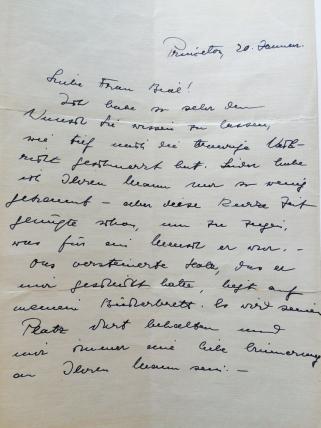 Princeton, 20. Januar.
Liebe Frau Bial!
Ich habe so sehr den
Wunsch Sie wissen zu lassen,
wie tief mich die traurige Nach-
richt geschmerzt hat. Leider habe
ich Ihren Mann nur so wenig
gekannt – aber diese kurze Zeit
genügte schon, um zu zeigen,
was für ein Mensch er war. –
Das versteinerte Holz, das er
mir geschickt hatte, liegt auf
meinem Bücherbrett. Es wird seinen
Platz dort behalten und
mir immer eine liebe Erinnerung
an Ihren Mann sein. –